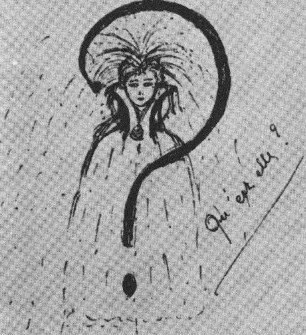 Qui est elle ?